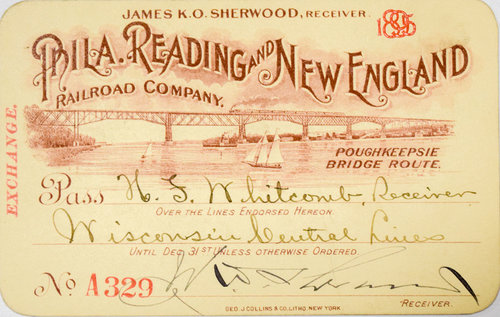 JAMES K.O. SHERWOOD, RECEIVER.
1895
PHILA. READING AND NEW ENGLAND
RAILROAD COMPANY.
EXCHANGE.
POUGHKEEPSIE
BRIDGE ROUTE.
Pass H. F. Whitcomb, Receiver
OVER THE LINES ENDORSED HEREON.
Wisconsin Central Lines
UNTIL DEC. 31ST UNLESS OTHERWISE ORDERED
No A329
RECEIVER.
GEO. J. COLLINS & CO. LITHO. NEW YORK